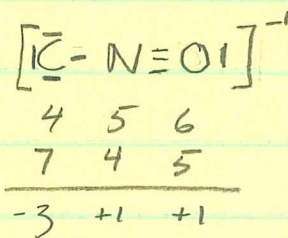 [|C̲̅ - N ≡ O|]⁻¹
4 5 6
7 4 5
-3 +1 +1